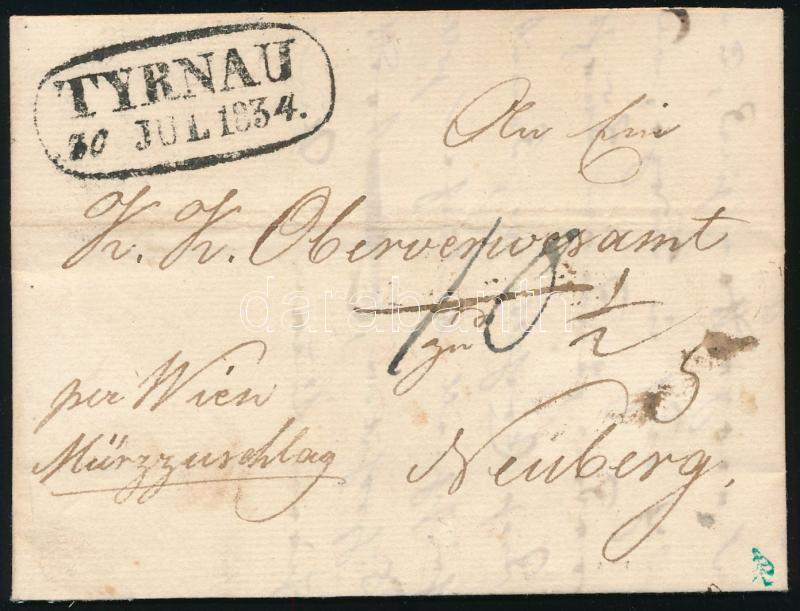 TYRNAU
30 JUL 1834.
An Ein
K. K. Oberverwesamt
zu
10 1/2
5
per Wien
Mürzzuschlag
Neuberg.
darabanth